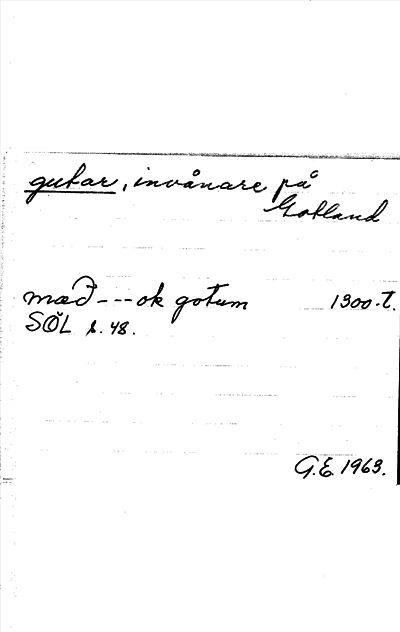 gutar, invånare på
Gotland
mæð---ok gotum 1300-t.
SÖL s. 48.
G.E. 1963.